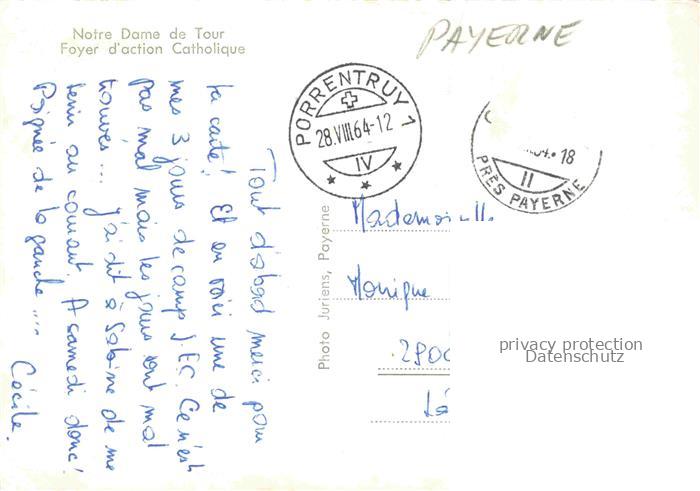 Notre Dame de Tour
Foyer d'action Catholique
PAYERNE
PORRENTRUY 1
28.VIII.64-12
IV
18
II
PRÈS PAYERNE
Tout d'abord merci pour
ta carte! Et en voici une de
mes 3 jours de camp JEC. Ce n'est
pas mal mais les jours sont mal
trouvés... J'ai dit à Sabine de me
tenir au courant. A samedi donc!
Poignée de la gauche....
Cécile.
Photo Juriens, Payerne
Mademoiselle
Monique
2900
privacy protection
Datenschutz